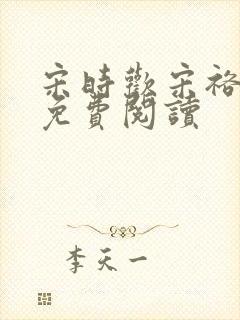 宋時歡宋裕
免費閱讀
李天一